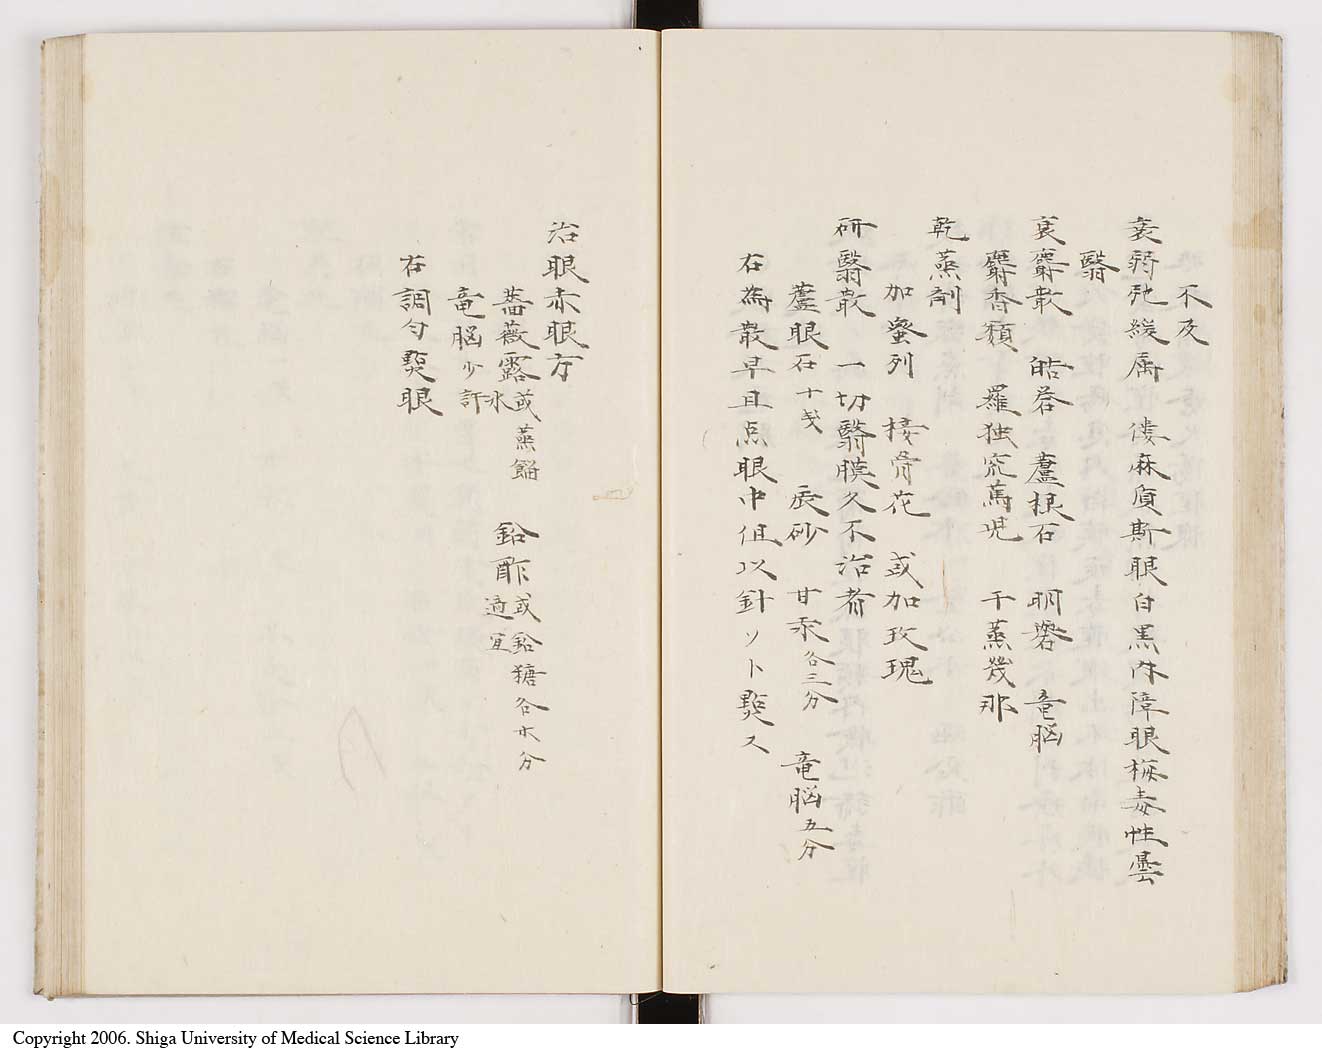 不及
衰弱弛緩属 僂麻質斯眼白黒内障眼梅毒性曇
翳
衰麝散 皓礬 蘆根石 明礬 竜脳
麝香類 羅独究蔦児 干蒸幾那
乾蒸剤
加蜜列 接骨花 或加玫瑰
研翳散 一切翳膜久不治者
蘆眼石十戔 辰砂 甘汞各三分 竜脳五分
右為散早且点眼中但以針ソト㸃ス
治眼赤眼方
薔薇露或蒸餾水 鉛酢或鉛糖各六分適宜
竜脳少許
右調匀㸃眼
Copyright 2006. Shiga University of Medical Science Library